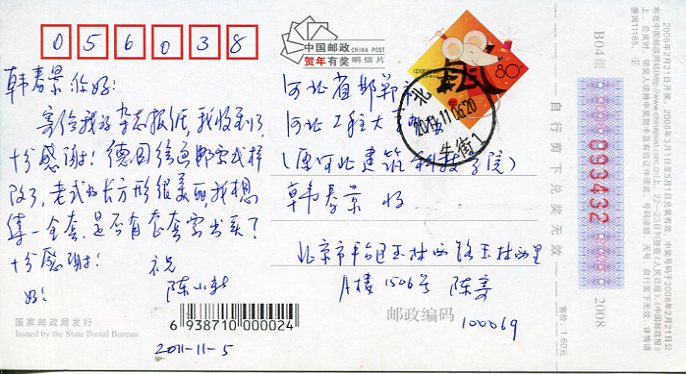 056038
中国邮政 CHINA POST
贺年有奖 明信片
80
北
2011.11.05.20
牛街1
韩春景你好：
寄给我的杂志报纸，我收到了，
十分感谢！德国绘画邮资式样
改了，老式的长方形很美丽，我想
集一全套，是否有套票出卖了
十分感谢！
祝
好！
陈小
2011-11-5
河北省邯郸市
河北工程大学
(原河北建筑科技学院)
韩春景 收
北京市丰台区玉林西路玉林西里
A楼1506号 陈
邮政编码
100069
国家邮政局发行
Issued by the State Postal Bureau
6 938710 000024
自行剪下兑奖无效
售价：1.60元
B04组
093432
2008